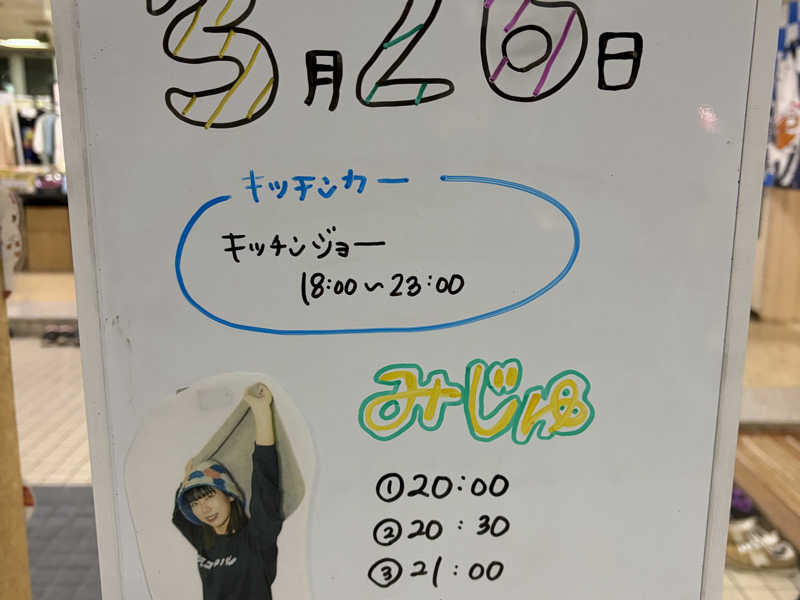 3月26日
キッチンカー
キッチンジョー
18:00~23:00
みじゅ
①20:00
②20:30
③21:00